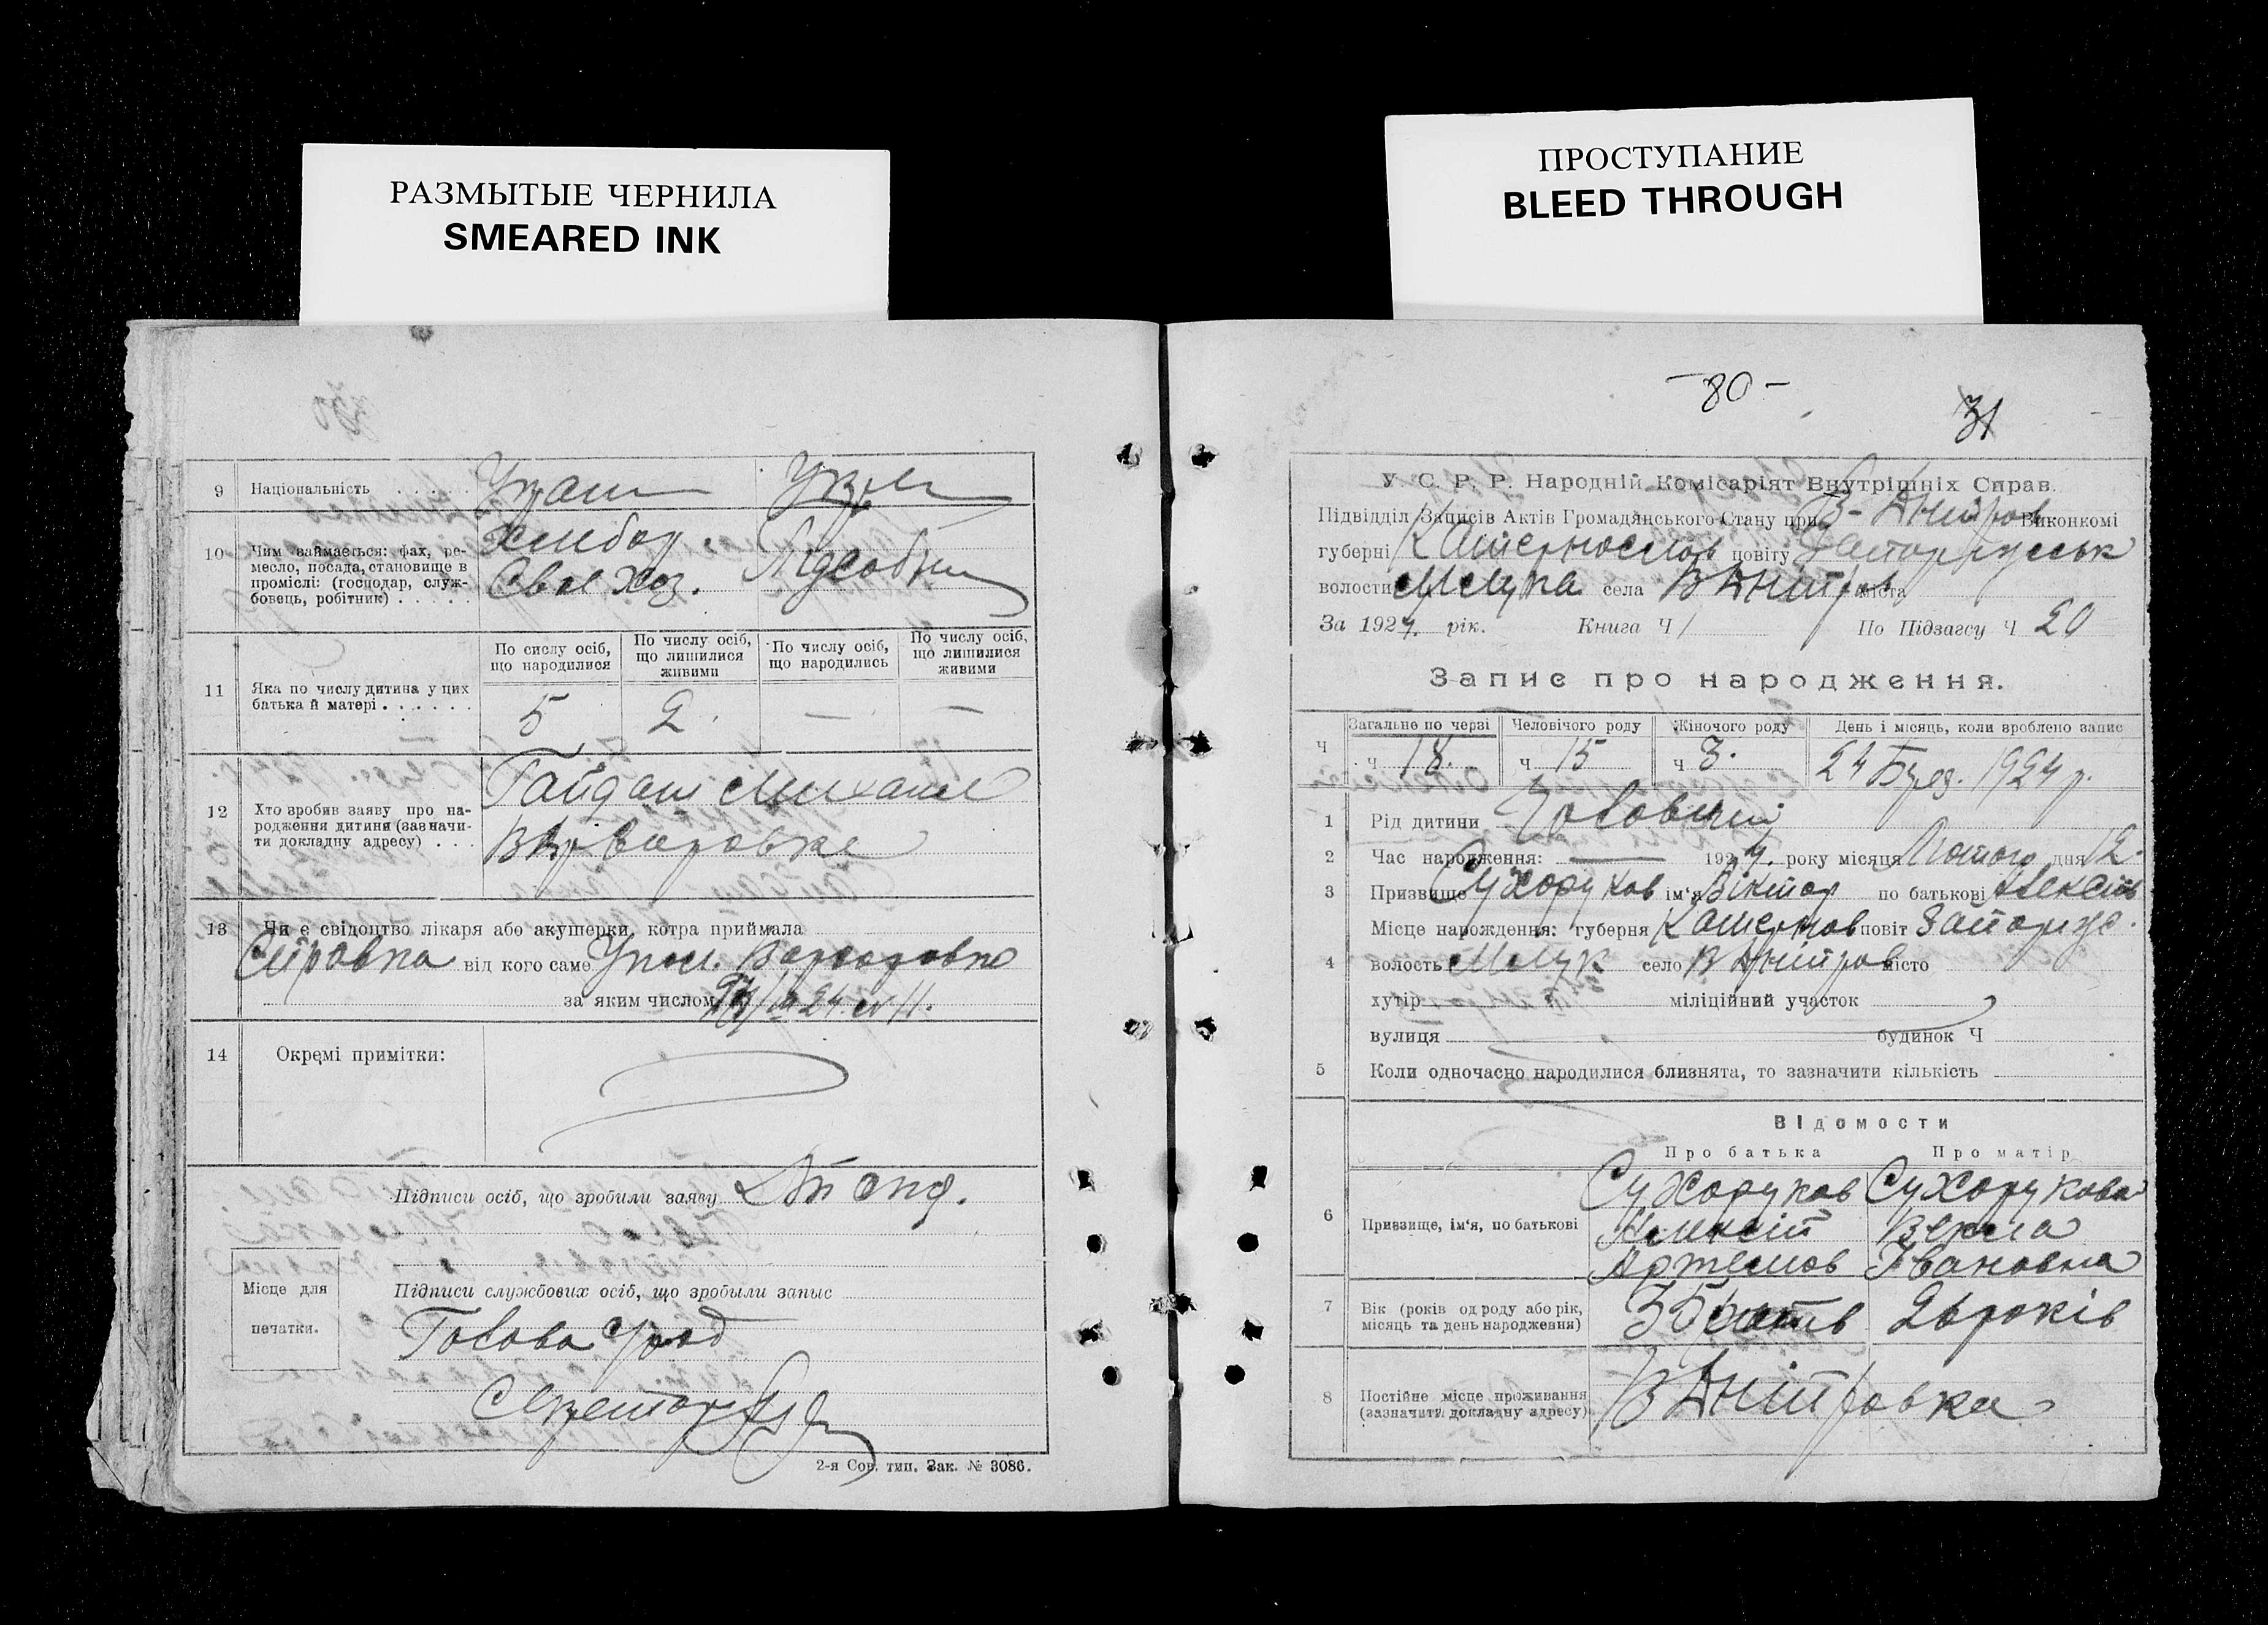 РАЗМЫТЫЕ ЧЕРНИЛА
SMEARED INK
ПРОСТУПАНИЕ
BLEED THROUGH
9 Національність . . . . .
10 Чим займається: фах, ре-
месло, посада, становище в
проміслі: (господар, служ-
бовець, робітник) . . . . .
Хлибор.
Свое Хоз.
11 Яка по числу дитина у цих
батька й матері . . . . . .
По сислу осіб,
що народилися
По числу осіб,
що лишилися
живими
По числу осіб,
що народились
По числу осіб,
що лишилися
живими
5 2. — —
12 Хто зробив заяву про на-
родження дитини (зазначи-
ти докладну адресу) . . .
Гайдаш Михаил
13 Чи є свідоцтво лікаря або акушерки, котра приймала
Справка від кого саме
за яким числом
14 Окремі примітки:
Підписи осіб, що зробили заяву
Місце для
печатки.
Підписи службових осіб, що зробыли запыс
Голова
Секретарь
2-я Сов. тип. Зак. № 3086.
- 80 -
31
У. С. Р. Р. Народній Комісаріят Внутрішніх Справ.
Підвідділ Записів Актів Громадянського Стану при В-Дніпров Виконкомі
губерні Катеринослав повіту
волости села В Дніпров міста
За 1924. рік. Книга Ч 1 По Підзагсу Ч 20
Запис про народження.
Ч Загальне по черзі Человічого роду Жіночого роду День і місяць, коли зроблено запис
ч 18. ч 15 ч 3. 24 Берез. 1924 р.
1 Рід дитини Чоловічий
2 Час народження: — 1924. року місяця Лютого дня 12.
3 Призвище Сухоруков ім‘я Віктор по батькові Алексеів
4 Місце нарождення: губерня Катеринов повіт Запоріж.
волость село В Дніпров місто
хутір міліційний участок
вулиця будинок Ч
5 Коли одночасно народилися близнята, то зазначити кількість
Відомости
Про батька Про матір
6 Призвище, ім‘я, по батькові
Сухоруков Сухорукова
Алексій Векла
Артемов Івановна
7 Вік (років од роду або рік,
місяць та день народження)
35 26 років
8 Постійне місце проживання
(зазначити докладну адресу)
В Дніпровка